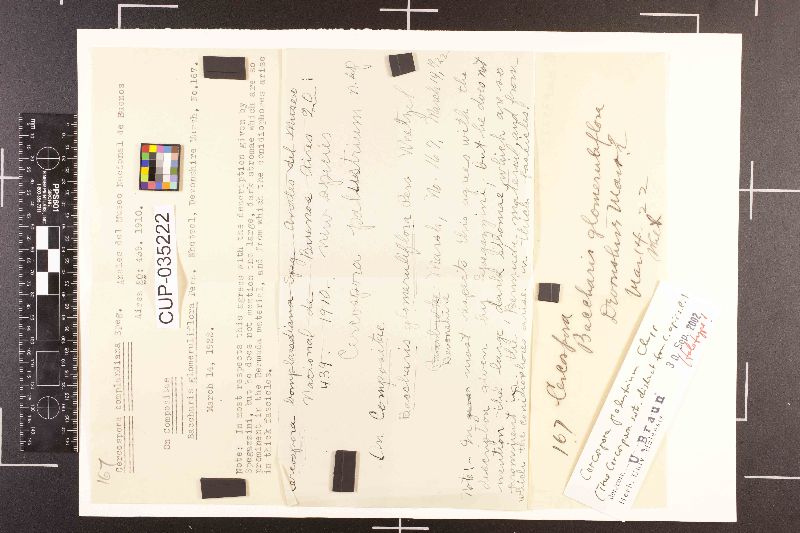 167
Cercospora complandiana Speg. Anales del Museo Nacional de Buenos
Aires 20: 439. 1910.
On Compositae
Baccharis glomeruliflora Pers. Whetzel, Devonshire Marsh, No. 167.
March 14, 1922.
Note: In most respects this agrees with the description given by
Spegazzini but he does not mention the large, dark stromae which are so
prominent in the Bermuda material, and from which the conidiophores arise
in thick fascicles.
CUP-035222
Cercospora Complandiana Speg. Anales del Museo
Nacional de Buenos Aires 20:
439- 1910. New species
Cercospora palustrium n.sp
On Compositae
Baccharis glomeruliflora Pers Whetzel
Marsh, No. 167, March 14,
Devonshire
Note:- In most respects this agrees with the
description given by Spegazzini but he does not
mention the large dark stromae, which are so
prominent in the Bermuda material, and from
which the conidiophores arise in thick fascicles.
167 Cercospora
Baccharis glomeruliflora
Devonshire Marsh
Mar 14 22
Cercospora palustrium Chupp
30 Sep. 2002
U. Braun
mm